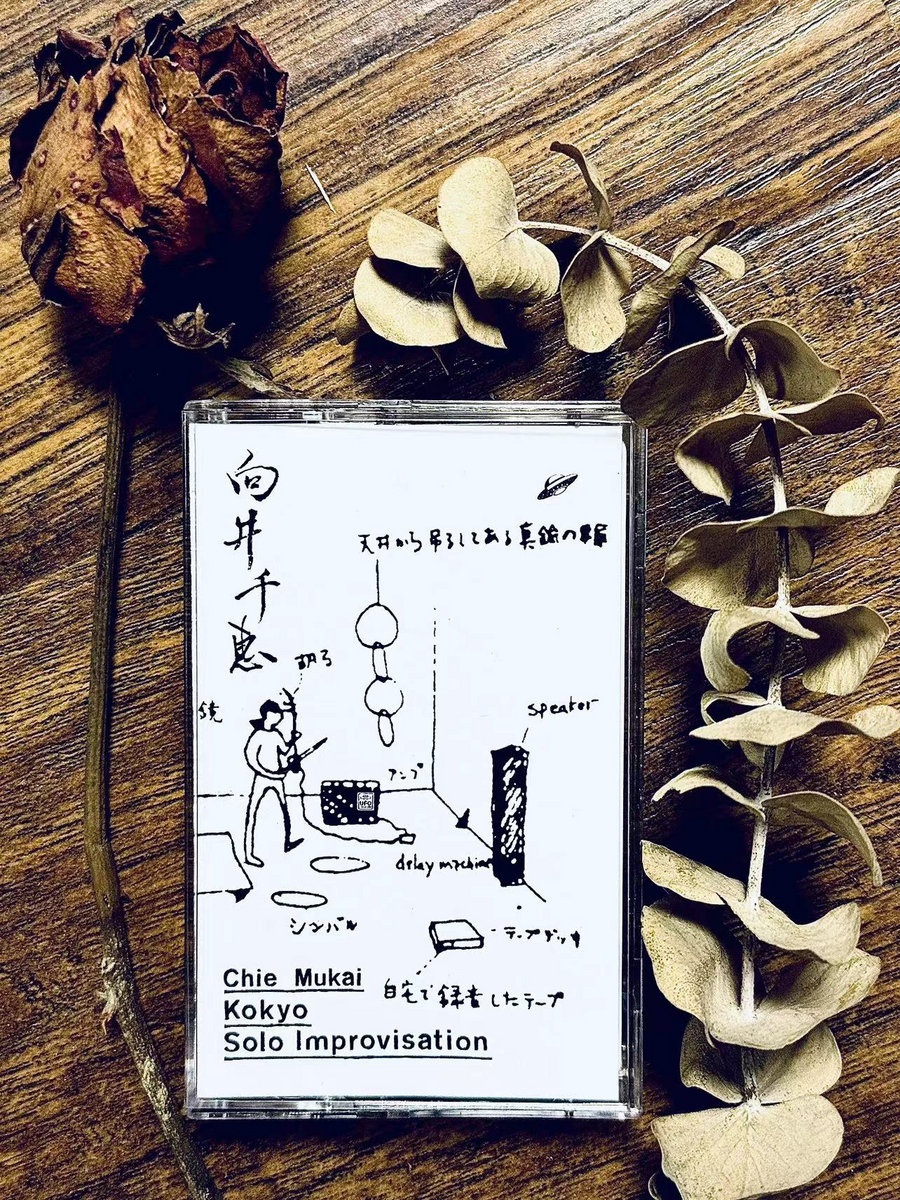 向井千恵
天井から吊るしてある真鍮の
胡弓
鏡
speaker
アンプ
UFO
delay machine
シンバル
テープデッキ
自宅で録音したテープ
Chie Mukai
Kokyo
Solo Improvisation